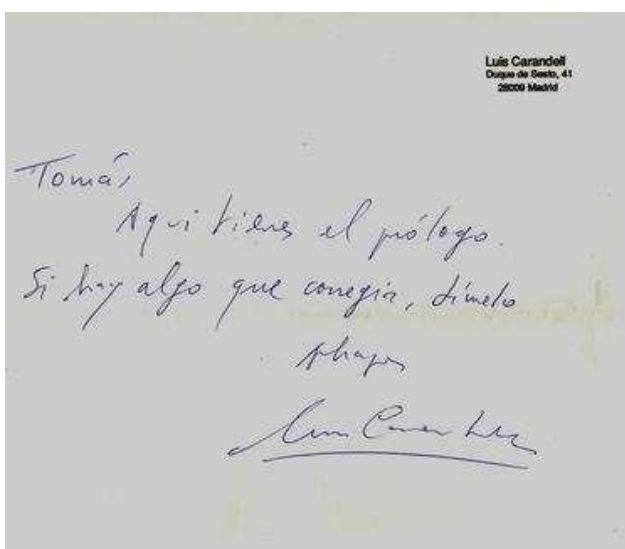 Luis Carandell
Duque de Sesto, 41
28009 Madrid
Tomás,
Aquí tienes el prólogo.
Si hay algo que corregir, dímelo
Abrazos
Luis Carandell